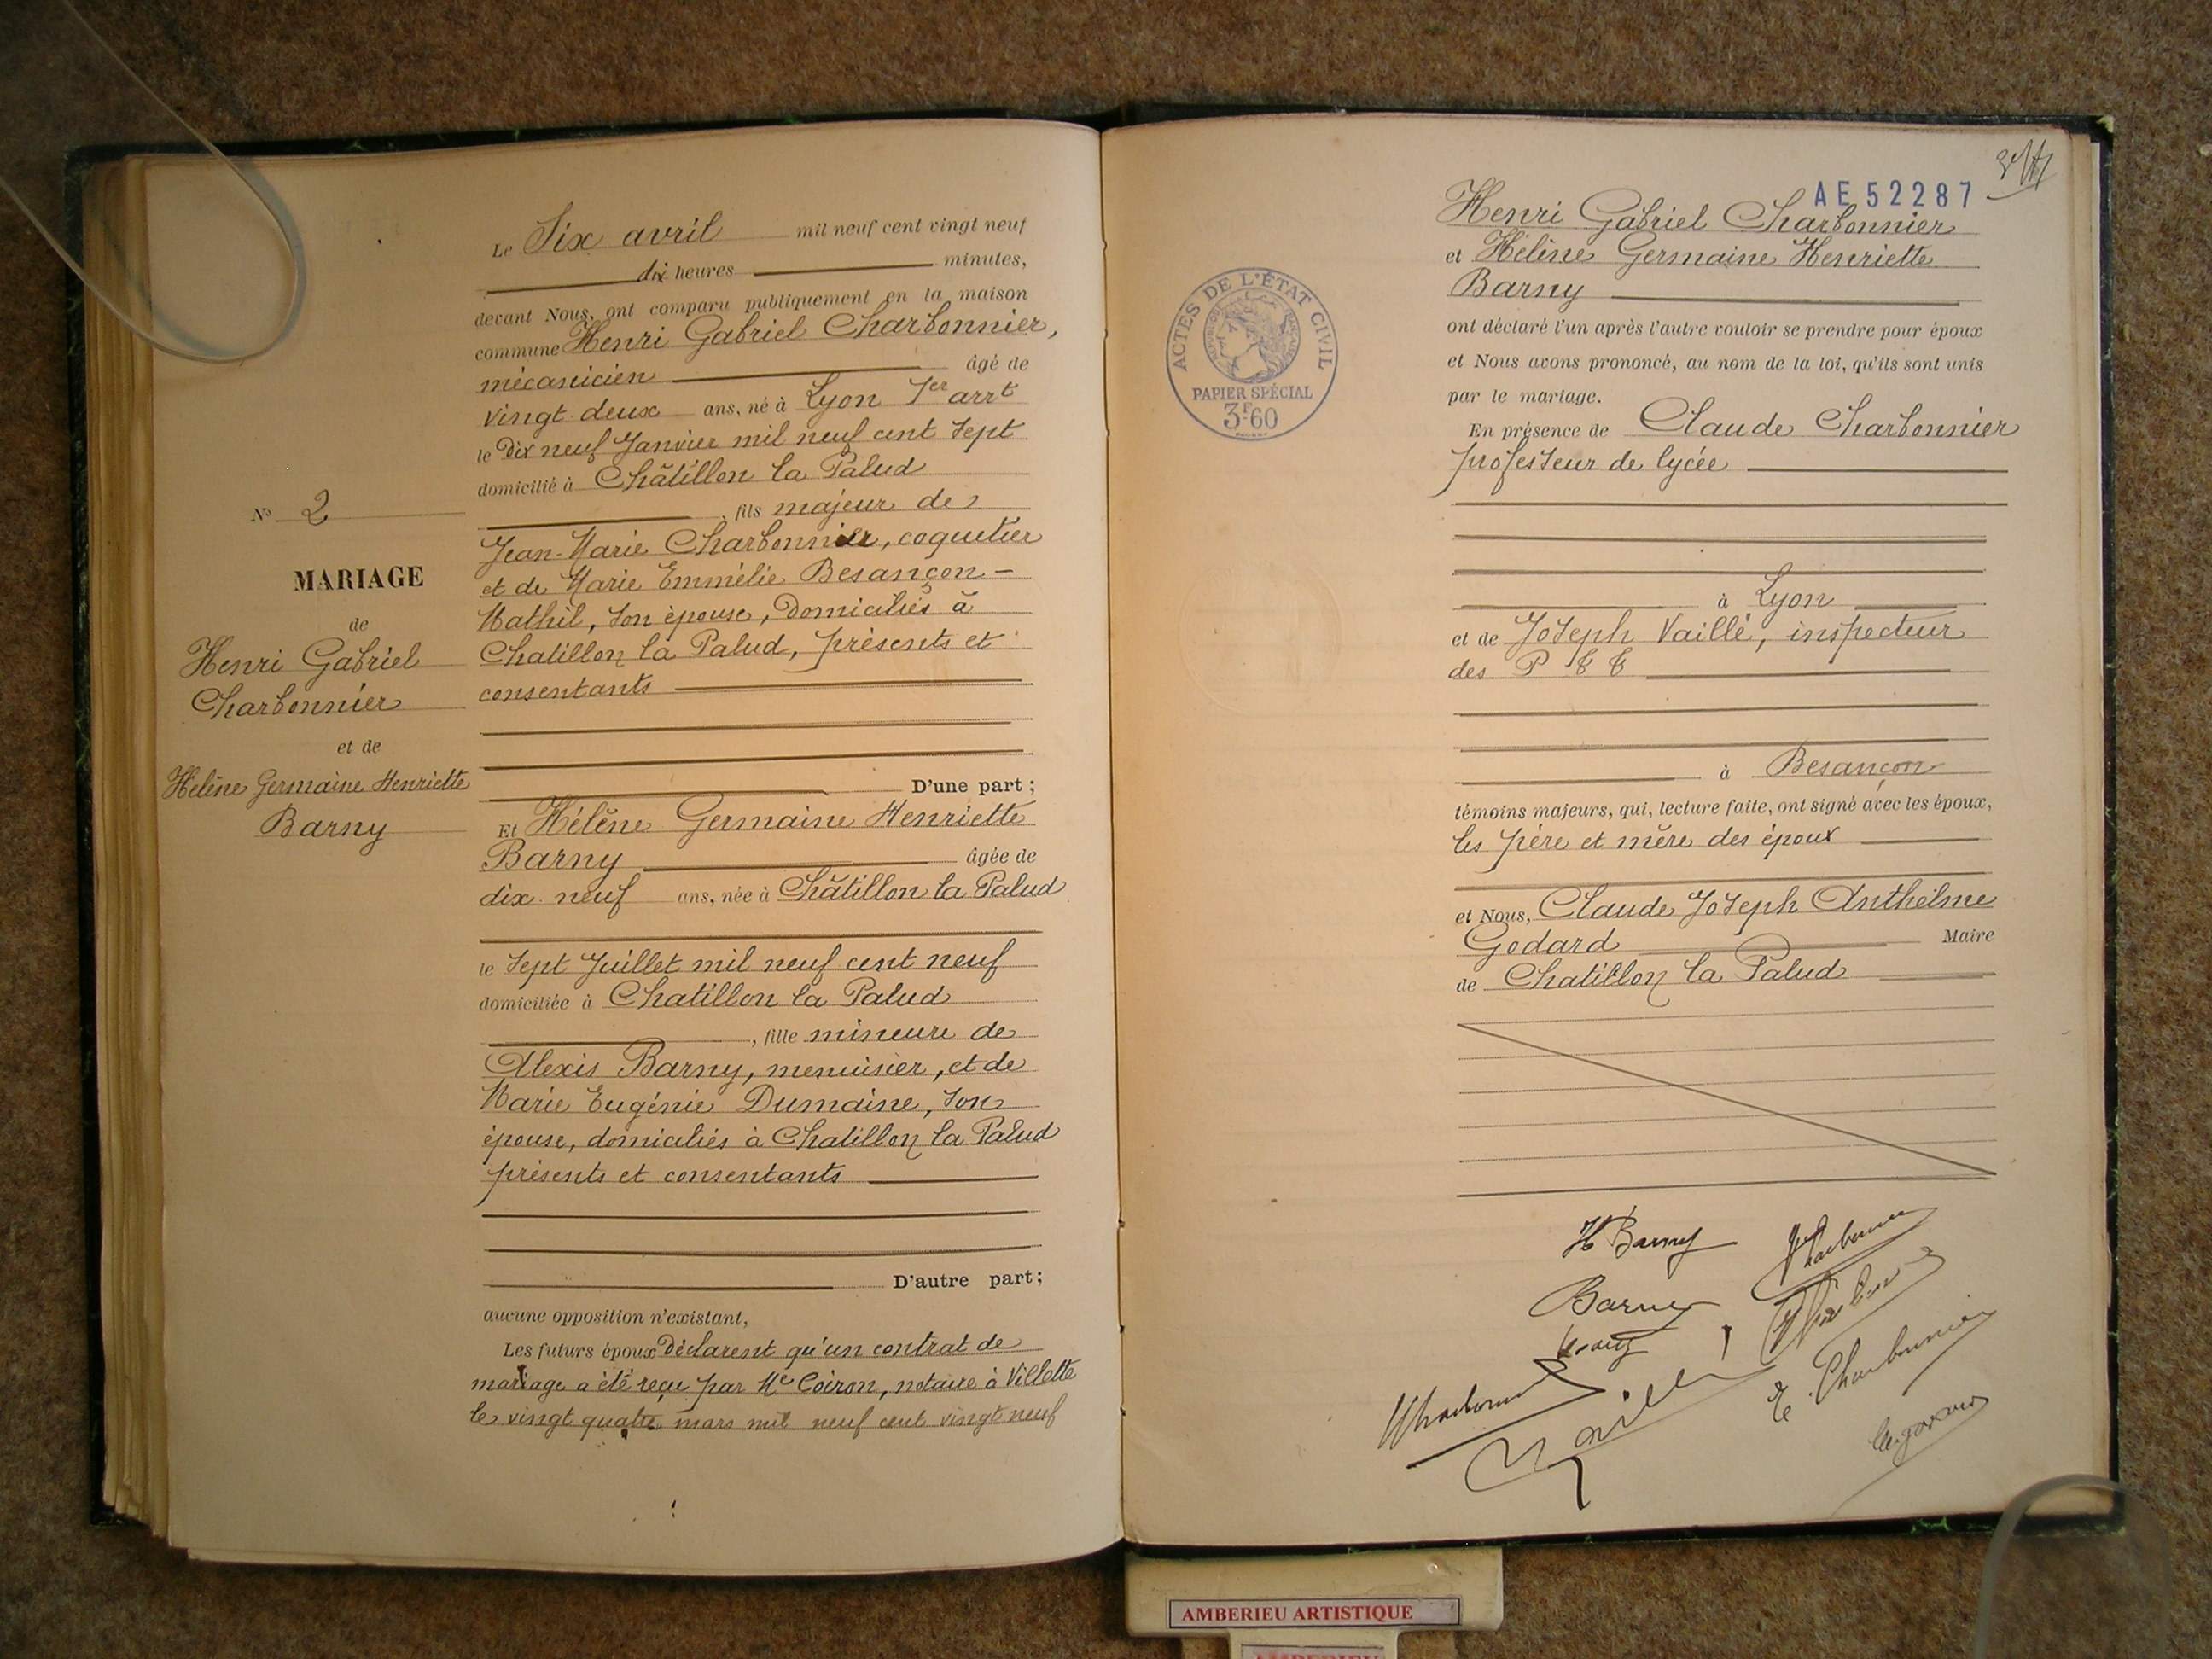 Le Six avril mil neuf cent vingt neuf
dix heures minutes,
devant Nous, ont comparu publiquement en la maison
commune Henri Gabriel Charbonnier,
mécanicien âgé de
vingt deux ans, né à Lyon 1er arrt
le Dix neuf Janvier mil neuf cent sept
domicilié à Châtillon la Palud
, fils majeur de
Jean-Marie Charbonnier, coquetier
et de Marie Emmélie Besançon-
Mathil, son épouse, domiciliés à
Chatillon la Palud, présents et
consentants
D'une part ;
Et Hélène Germaine Henriette
Barny âgée de
dix neuf ans, née à Châtillon la Palud
le sept Juillet mil neuf cent neuf
domiciliée à Chatillon la Palud
, fille mineure de
Alexis Barny, menuisier, et de
Marie Eugénie Dumaine, son
épouse, domiciliés à Chatillon la Palud
présents et consentants
D'autre part ;
aucune opposition n'existant,
Les futurs époux Déclarent qu'un contrat de
mariage a été reçu par Me Coiron, notaire à Villette
le vingt quatre mars mil neuf cent vingt neuf
No 2
MARIAGE
de
Henri Gabriel
Charbonnier
et de
Hélène Germaine Henriette
Barny
AE 52287
Henri Gabriel Charbonnier
et Hélène Germaine Henriette
Barny
ont déclaré l'un après l'autre vouloir se prendre pour époux
et Nous avons prononcé, au nom de la loi, qu'ils sont unis
par le mariage.
En présence de Claude Charbonnier
professeur de lycée
à Lyon
et de Joseph Vaillé, inspecteur
des P T T
à Besançon
témoins majeurs, qui, lecture faite, ont signé avec les époux,
les père et mère des époux
et Nous, Claude Joseph Anthelme
Godard Maire
de Chatillon la Palud
H Barny
Barny
E. Charbonnier
ACTES DE L'ÉTAT CIVIL
RÉPUBLIQUE FRANÇAISE
PAPIER SPÉCIAL
3F60
AMBERIEU ARTISTIQUE
AMBERIEU